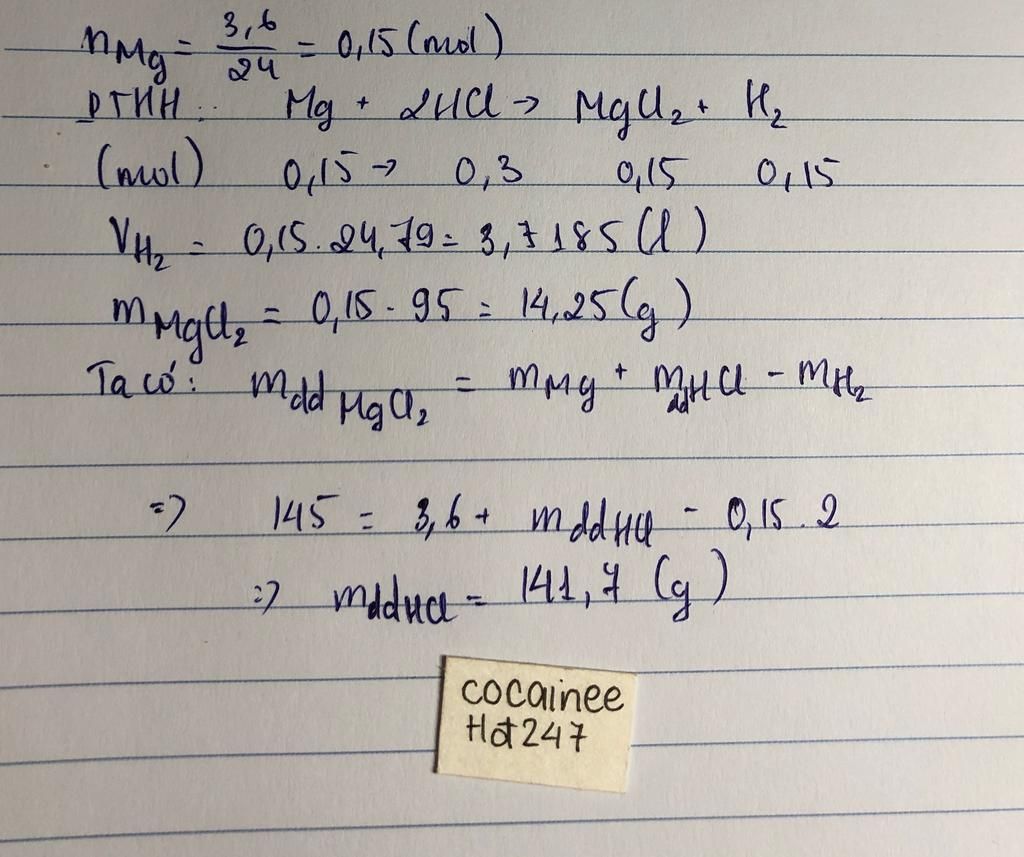 nMg = 3,6/24 = 0,15 (mol)
PTHH: Mg + 2HCl → MgCl₂ + H₂
(mol) 0,15 → 0,3 0,15 0,15
VH₂ = 0,15.24,79 = 3,7185 (l)
mMgCl₂ = 0,15.95 = 14,25 (g)
Ta có: mdd MgCl₂ = mMg + mddHCl - mH₂
=> 145 = 3,6 + mddHCl - 0,15.2
=> mddHCl = 141,7 (g)
cocainee
Hot247